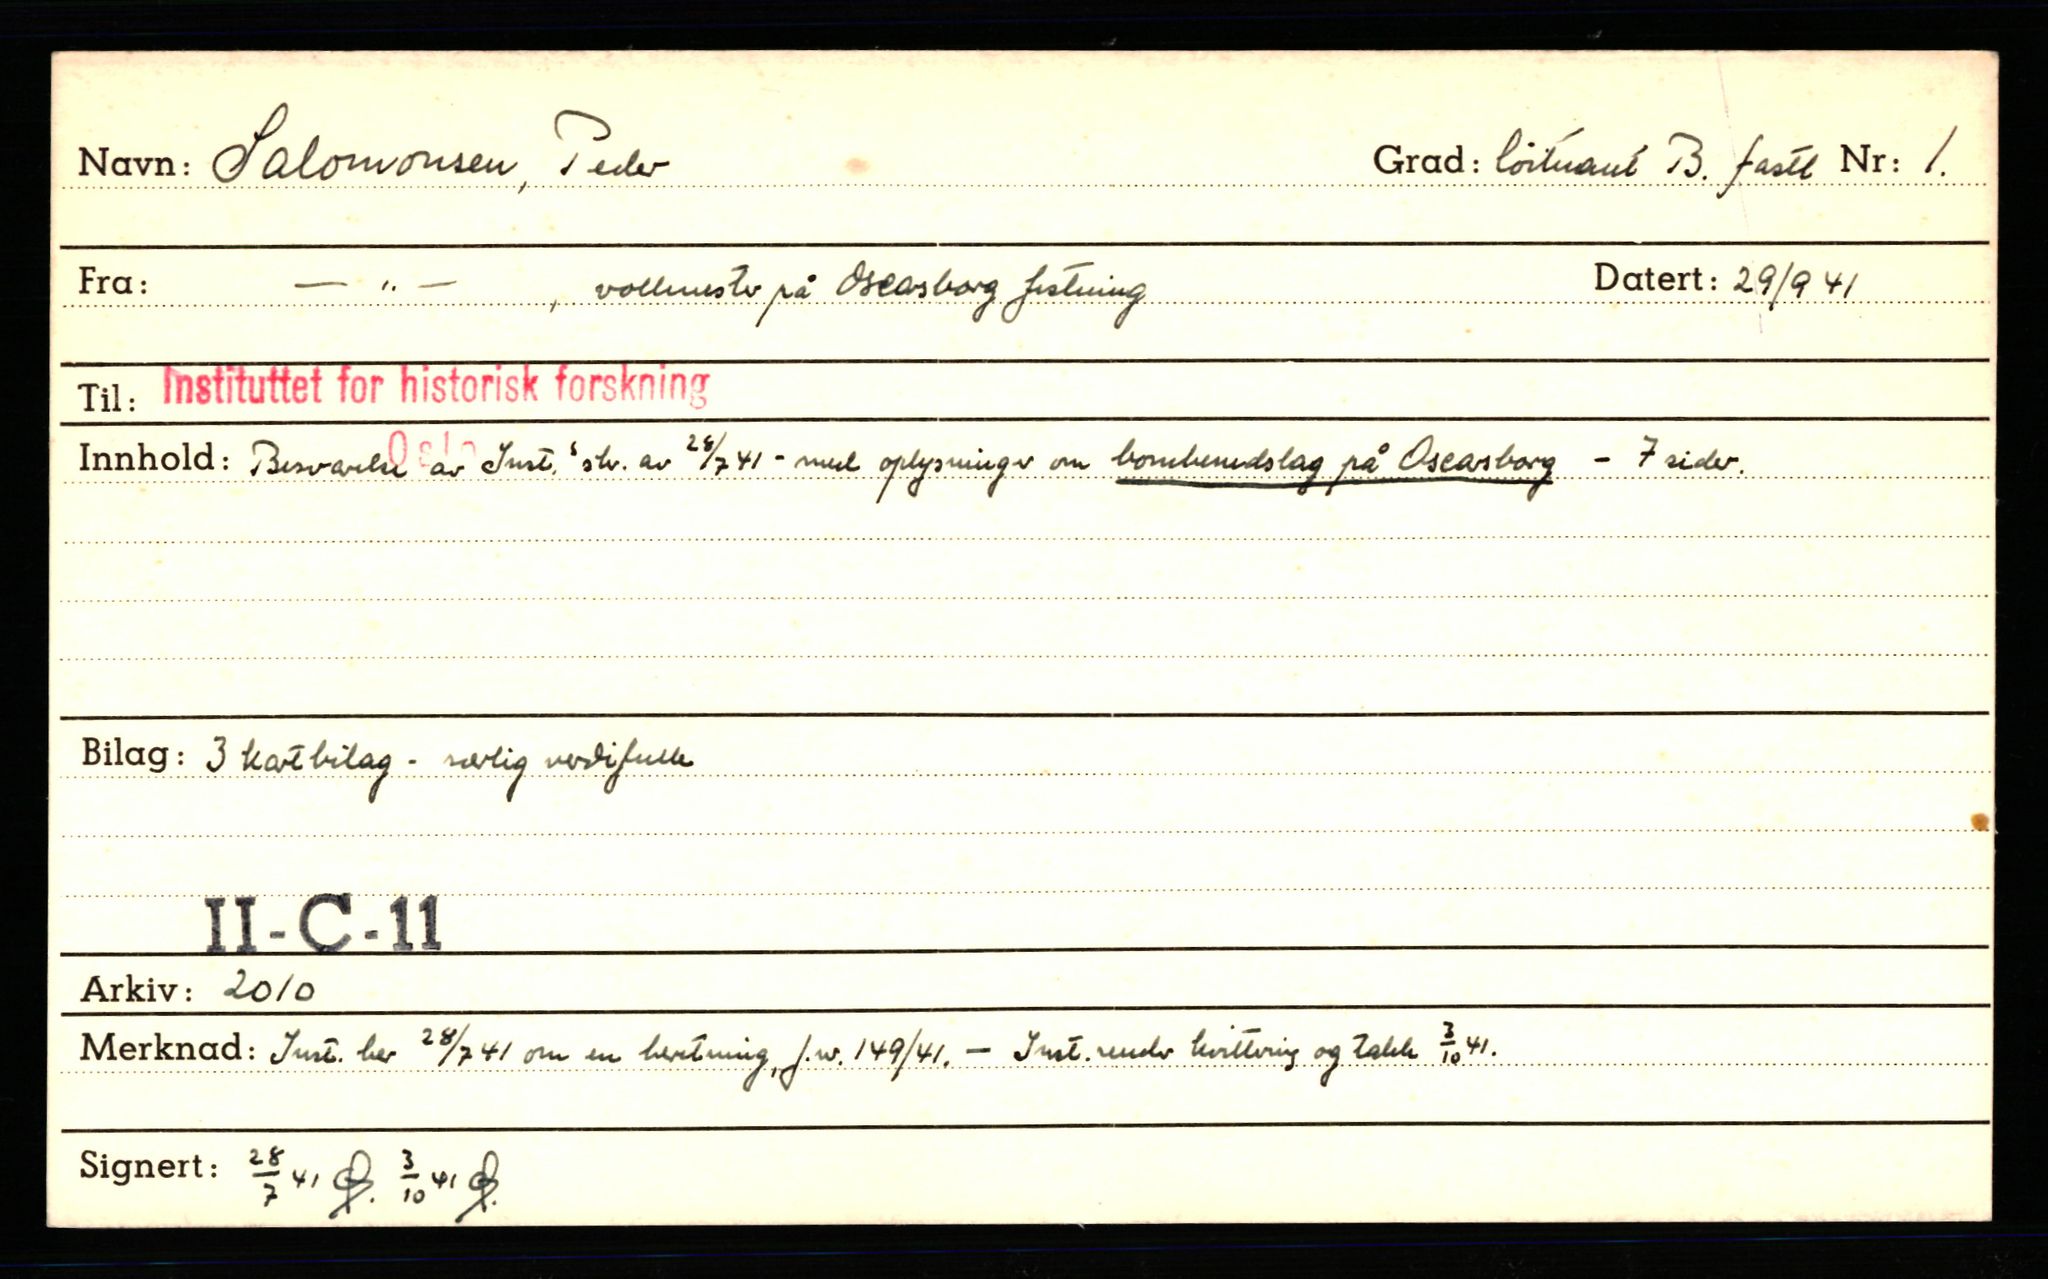 Navn: Salomonsen, Peder Grad: løitnant B. fast Nr: 1.
Fra: — " — , vollmester på Oscarsborg festning Datert: 29/9 41
Til: Instituttet for historisk forskning
Oslo
Innhold: Besvarelse av Inst.'s skr. av 28/7 41 - med oplysninger om bombenedslag på Oscarsborg - 7 sider.
Bilag: 3 kartbilag - særlig verdifulle
II-C-11
Arkiv: 2010
Merknad: Inst. ber 28/7 41 om en beretning, j.nr. 149/41. — Inst. sender kvittering og takk 3/10 41.
Signert: 28/7 41 3/10 41